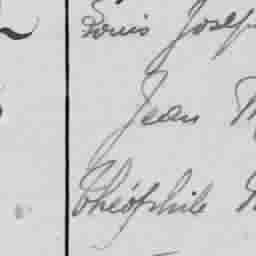 Louis Joseph
Jean M
Théophile